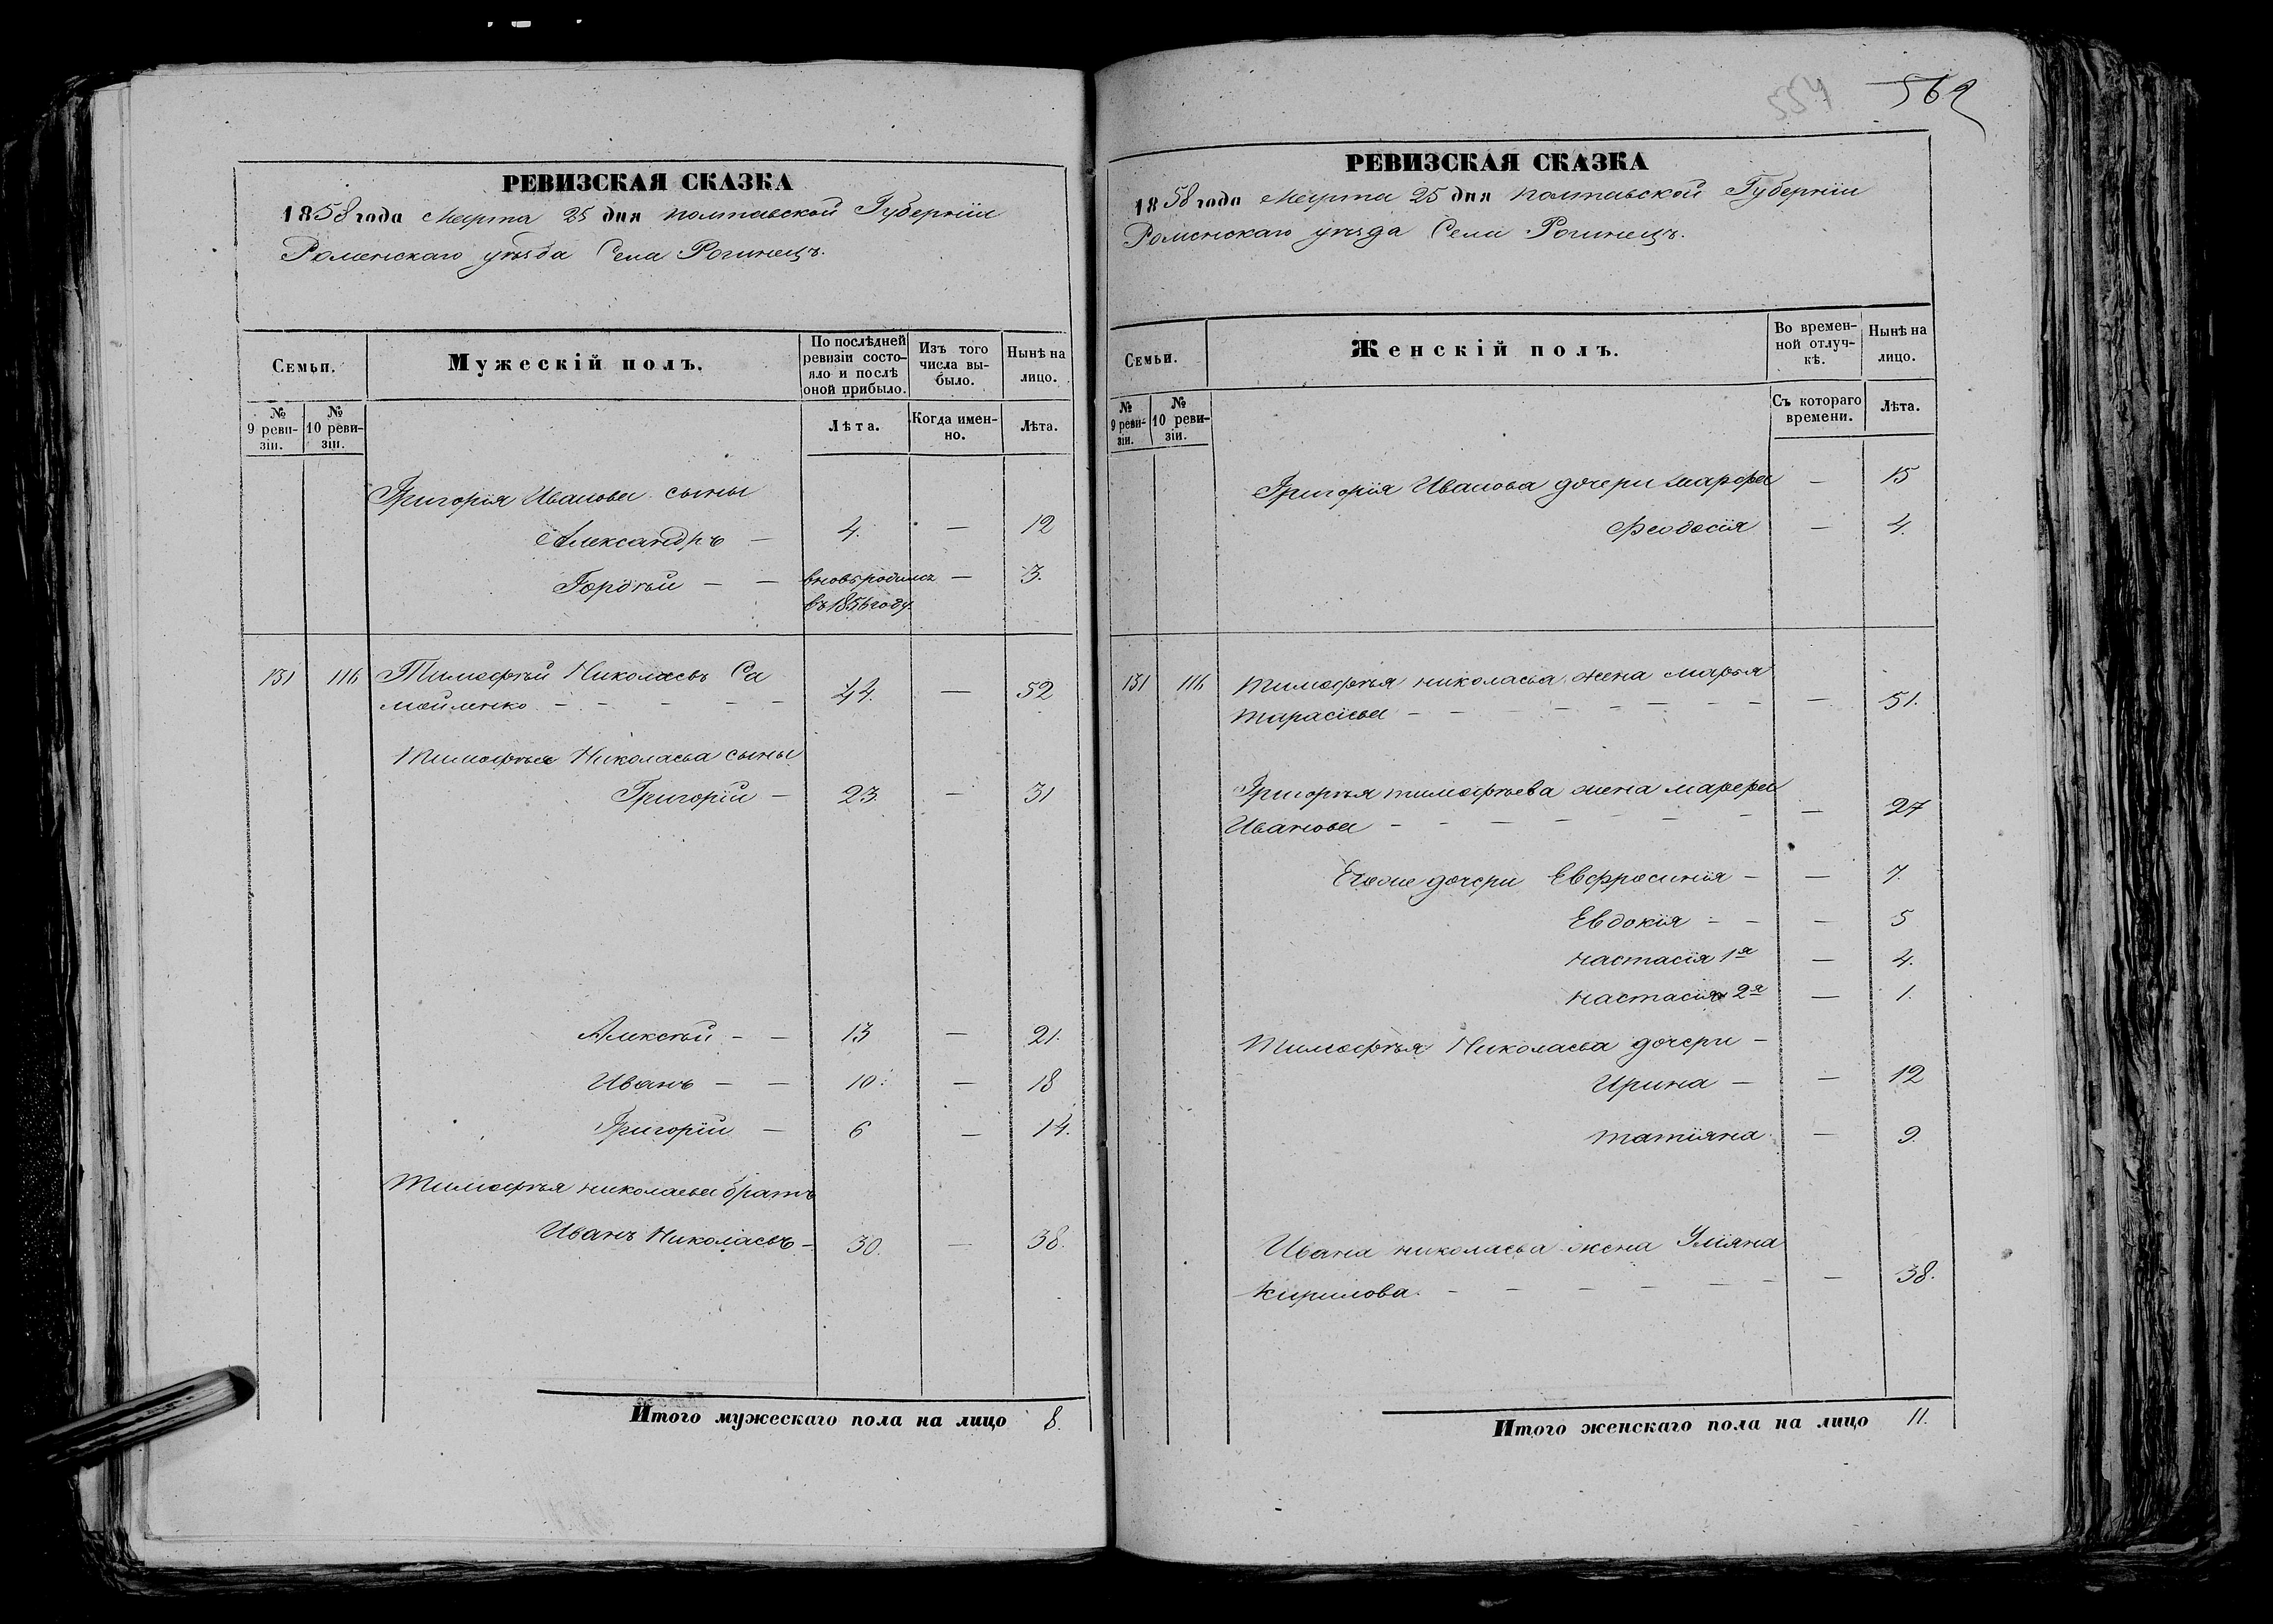 РЕВИЗСКАЯ СКАЗКА
1858 года Марта 25 дня Полтавской Губерніи
Роменскаго уѣзда Села Рогинецъ.
Семьи.
Мужескій полъ.
По послѣдней ревизіи состояло и послѣ оной прибыло.
Изъ того числа выбыло.
Нынѣ на лицо.
№ 9 ревизіи.
№ 10 ревизіи.
Лѣта.
Когда именно.
Лѣта.
Григорія Иванова сыны
Александръ — 4. — 12
Гордѣй — — вновь родился — 3.
въ 1856 году.
131 116 Тимофѣй Николаевъ Са
мойленко - - - - - 44. — 52
Тимофѣя Николаева сыны
Григорій — 23. — 31
Алексѣй - — 13 — 21.
Иванъ — — 10. — 18
Григорій — 6 — 14.
Тимофѣя Николаева братъ
Иванъ Николаевъ - 30. — 38.
Итого мужескаго пола на лицо 8.
554 562
РЕВИЗСКАЯ СКАЗКА
1858 года Марта 25 дня Полтавской Губерніи
Роменскаго уѣзда Села Рогинецъ.
Семьи.
Женскій полъ.
Во временной отлучкѣ.
Нынѣ на лицо.
№ 9 ревизіи.
№ 10 ревизіи.
Съ котораго времени.
Лѣта.
Григорія Иванова дочери Марфа — 15
Феодосія — 4.
131 116 Тимофѣя Николаева жена Марья
Тарасіева - - - - - - — 51.
Григорья Тимофѣева жена Марфа
Иванова - - - - - - — 27
Егоже дочери Евфросинія - — 7.
Евдокія - - — 5
Настасія 1я — 4.
Настасія 2я — 1.
Тимофѣя Николаева дочери -
Ирина — — 12
Татіяна — 9.
Ивана Николаева жена Уліяна
Кирилова. - - - - - — 38.
Итого женскаго пола на лицо 11.